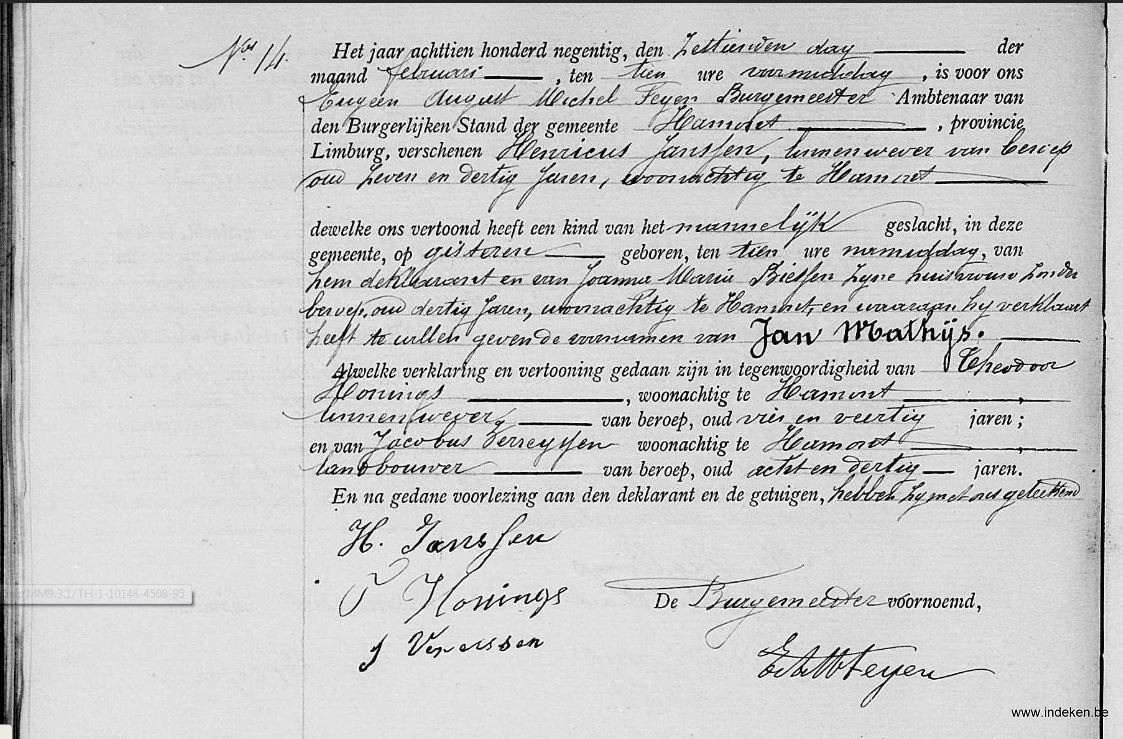 No. 14.
Het jaar achttien honderd negentig, den Zestienden dag der
maand februari, ten tien ure voormiddag, is voor ons
Eugeen August Michel Feyen Burgemeester Ambtenaar van
den Burgerlijken Stand der gemeente Hamont, provincie
Limburg, verschenen Henricus Janssen, linnenwever van beroep
oud zeven en dertig Jaren, woonachtig te Hamont
dewelke ons vertoond heeft een kind van het mannelijk geslacht, in deze
gemeente, op gisteren geboren, ten tien ure namiddag, van
hem deklarant en van Joanna Maria Biessen zyne huisvrouw zonder
beroep, oud dertig Jaren, woonachtig te Hamont, en waaraan hy verklaart
heeft te willen geven de voornamen van Jan Mathijs.
Alwelke verklaring en vertooning gedaan zijn in tegenwoordigheid van Theodoor
Honings, woonachtig te Hamont,
linnenwever, van beroep, oud vier en veertig jaren;
en van Jacobus woonachtig te Hamont,
landbouwer van beroep, oud acht en dertig jaren.
En na gedane voorlezing aan den deklarant en de getuigen, hebben zy met ons geteekend
H. Janssen
Honings
De Burgemeester voornoemd,
J
Feyen
/MM9.3.1/TH-1-10148-4508-95
www.indeken.be